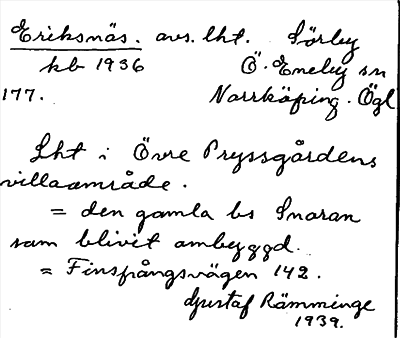 Eriksnäs. avs. lht. Sörby
kb 1936 Ö. Eneby sn
177. Norrköping. Ögl
Lht i Övre Pryssgårdens
villaområde.
= den gamla bs Snaran
som blivit ombyggd.
= Finspångsvägen 142.
Gustaf Rämminge
1939.